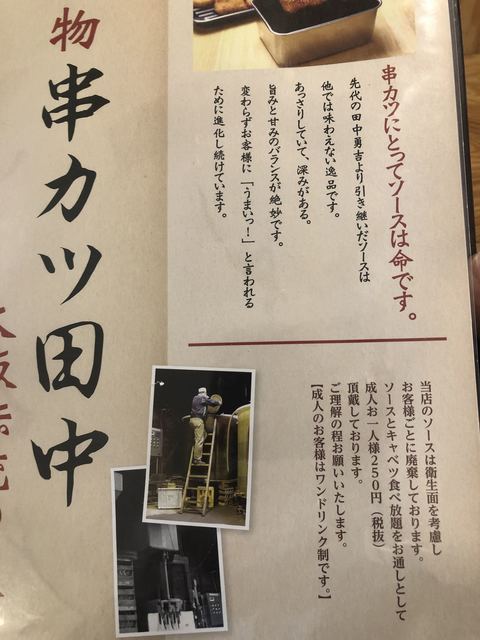 串カツにとってソースは命です。
先代の田中勇吉より引き継いだソースは
他では味わえない逸品です。
あっさりしていて、深みがある。
旨みと甘みのバランスが絶妙です。
変わらずお客様に「うまいっ！」と言われる
ために進化し続けています。
当店のソースは衛生面を考慮し
お客様ごとに廃棄しております。
ソースとキャベツ食べ放題をお通しとして
成人お一人様250円（税抜）
頂戴しております。
ご理解の程お願いいたします。
【成人のお客様はワンドリンク制です。】
物
串カツ田中